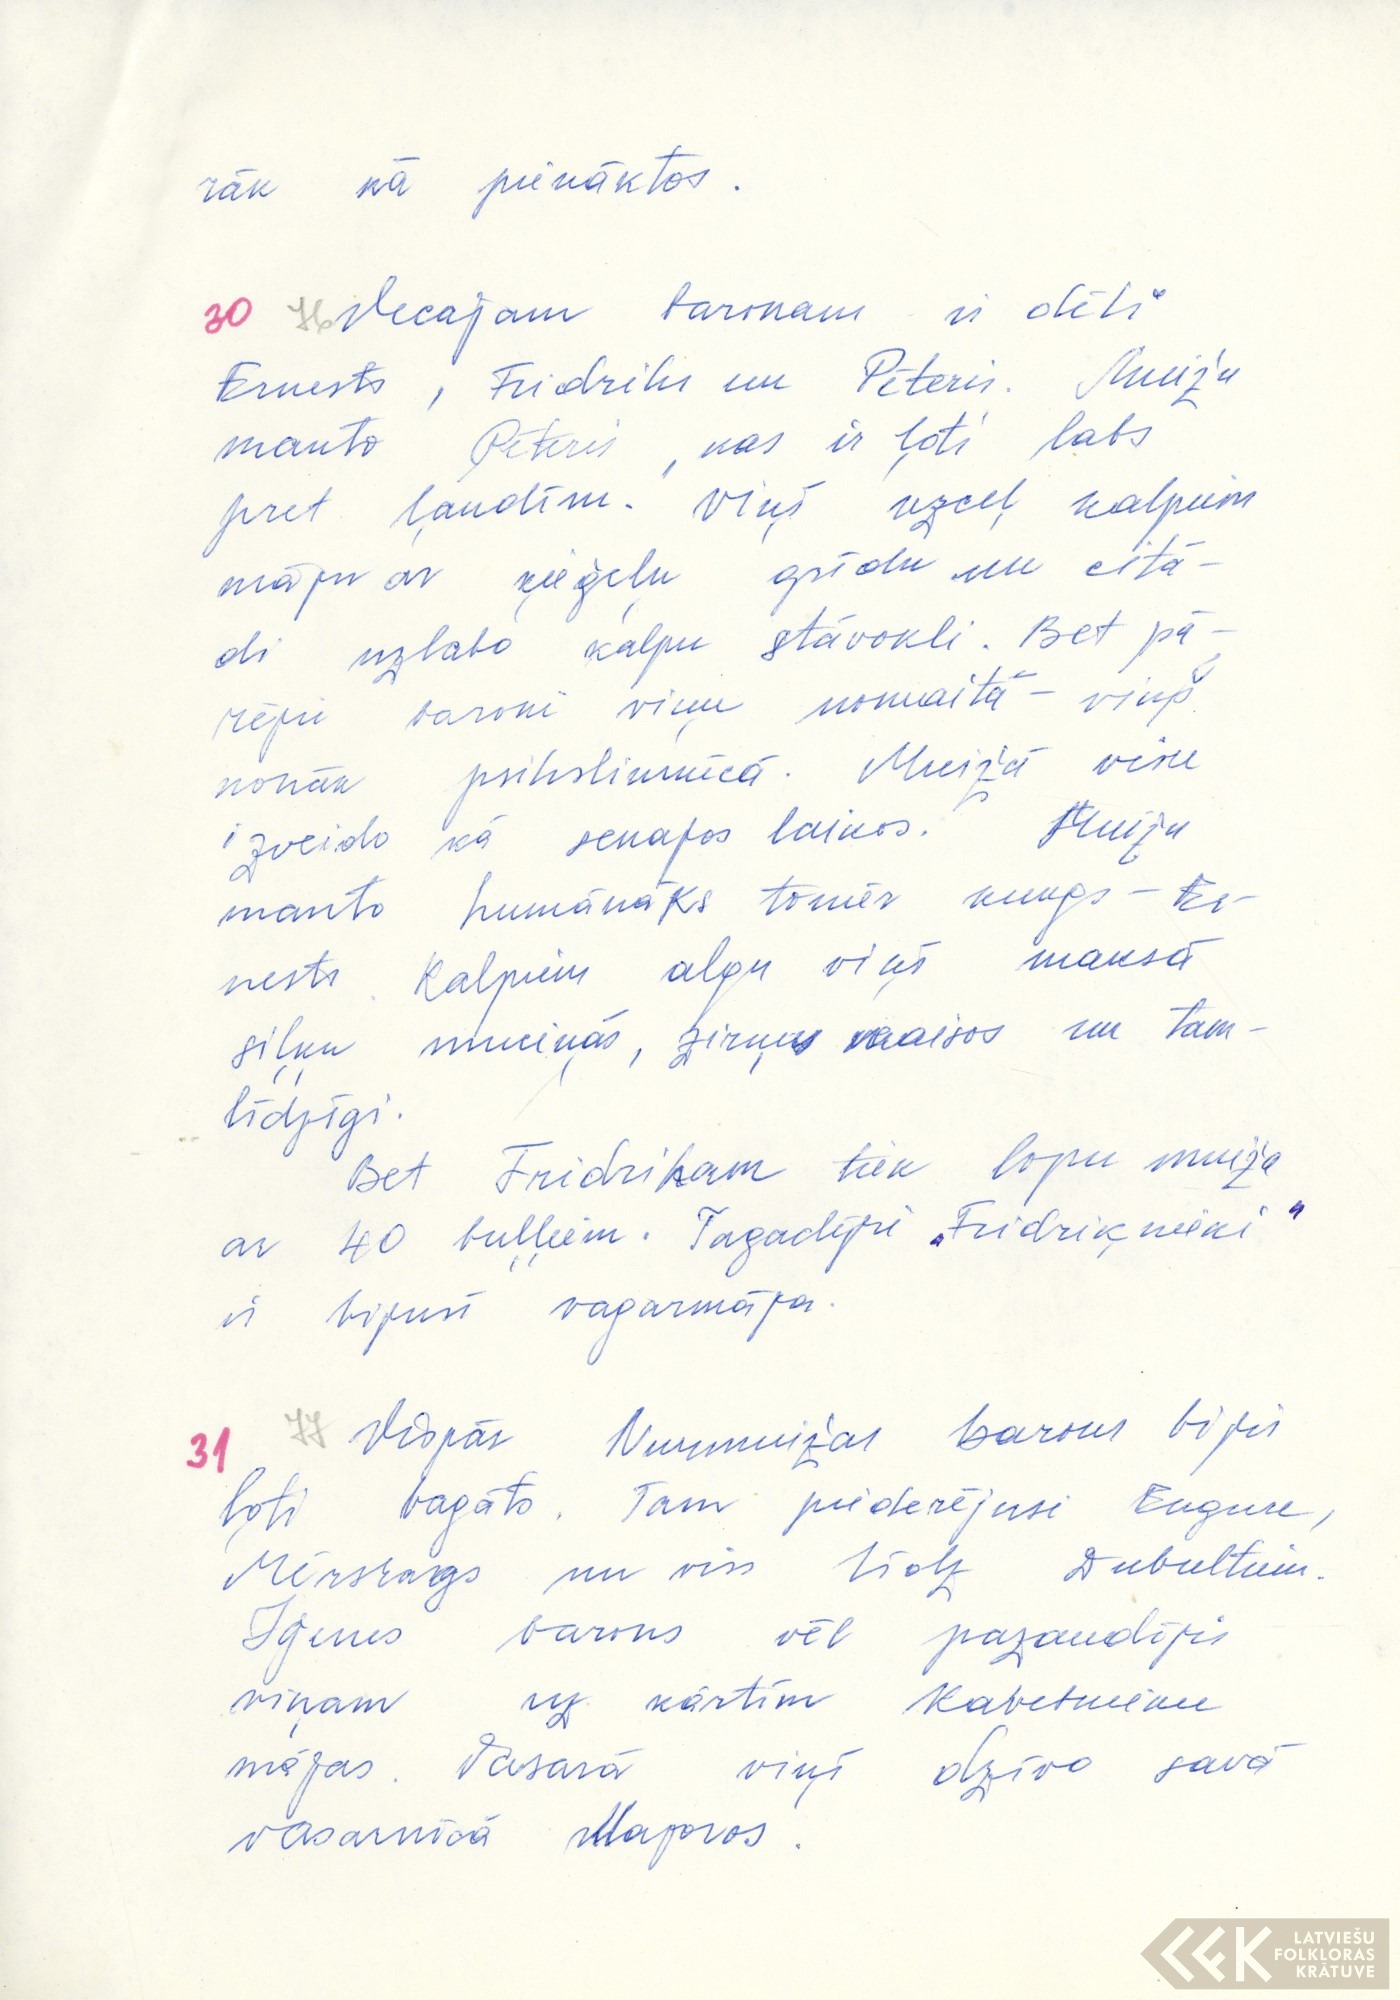 rāk kā pienāktos.
30 76 Vecajam baronam ir dēli
Ernests, Fridrihs un Pēteris. Muižu
manto Pēteris, kas ir ļoti labs
pret ļaudīm. Viņš uzceļ kalpiem
māju ar ķieģeļu grīdu un citā-
di uzlabo kalpu stāvokli. Bet pā-
rējie baroni viņu nomaitā – viņš
nonāk psihslimnīcā. Muižā visu
izveido kā senajos laikos. Muižu
manto humānāks tomēr kungs – Er-
nests. Kalpiem algu viņš maksā
siļķu muciņās, zirņus maisos un tam-
līdzīgi.
Bet Fridriham tiek lopu muiža
ar 40 buļļiem. Tagadējie "Fridriķnieki"
ir bijusī vagarmāja.
31 77 Vispār Nurmuižas barons bijis
ļoti bagāts. Tam piederējusi Engure,
Mērsrags un viss līdz Dubultiem.
Iģenes barons vēl pazaudējis
viņam uz kārtīm Kabetnieku
mājas. Vasarā viņš dzīvo savā
vasarnīcā Majoros.
LATVIEŠU
FOLKLORAS
KRĀTUVE